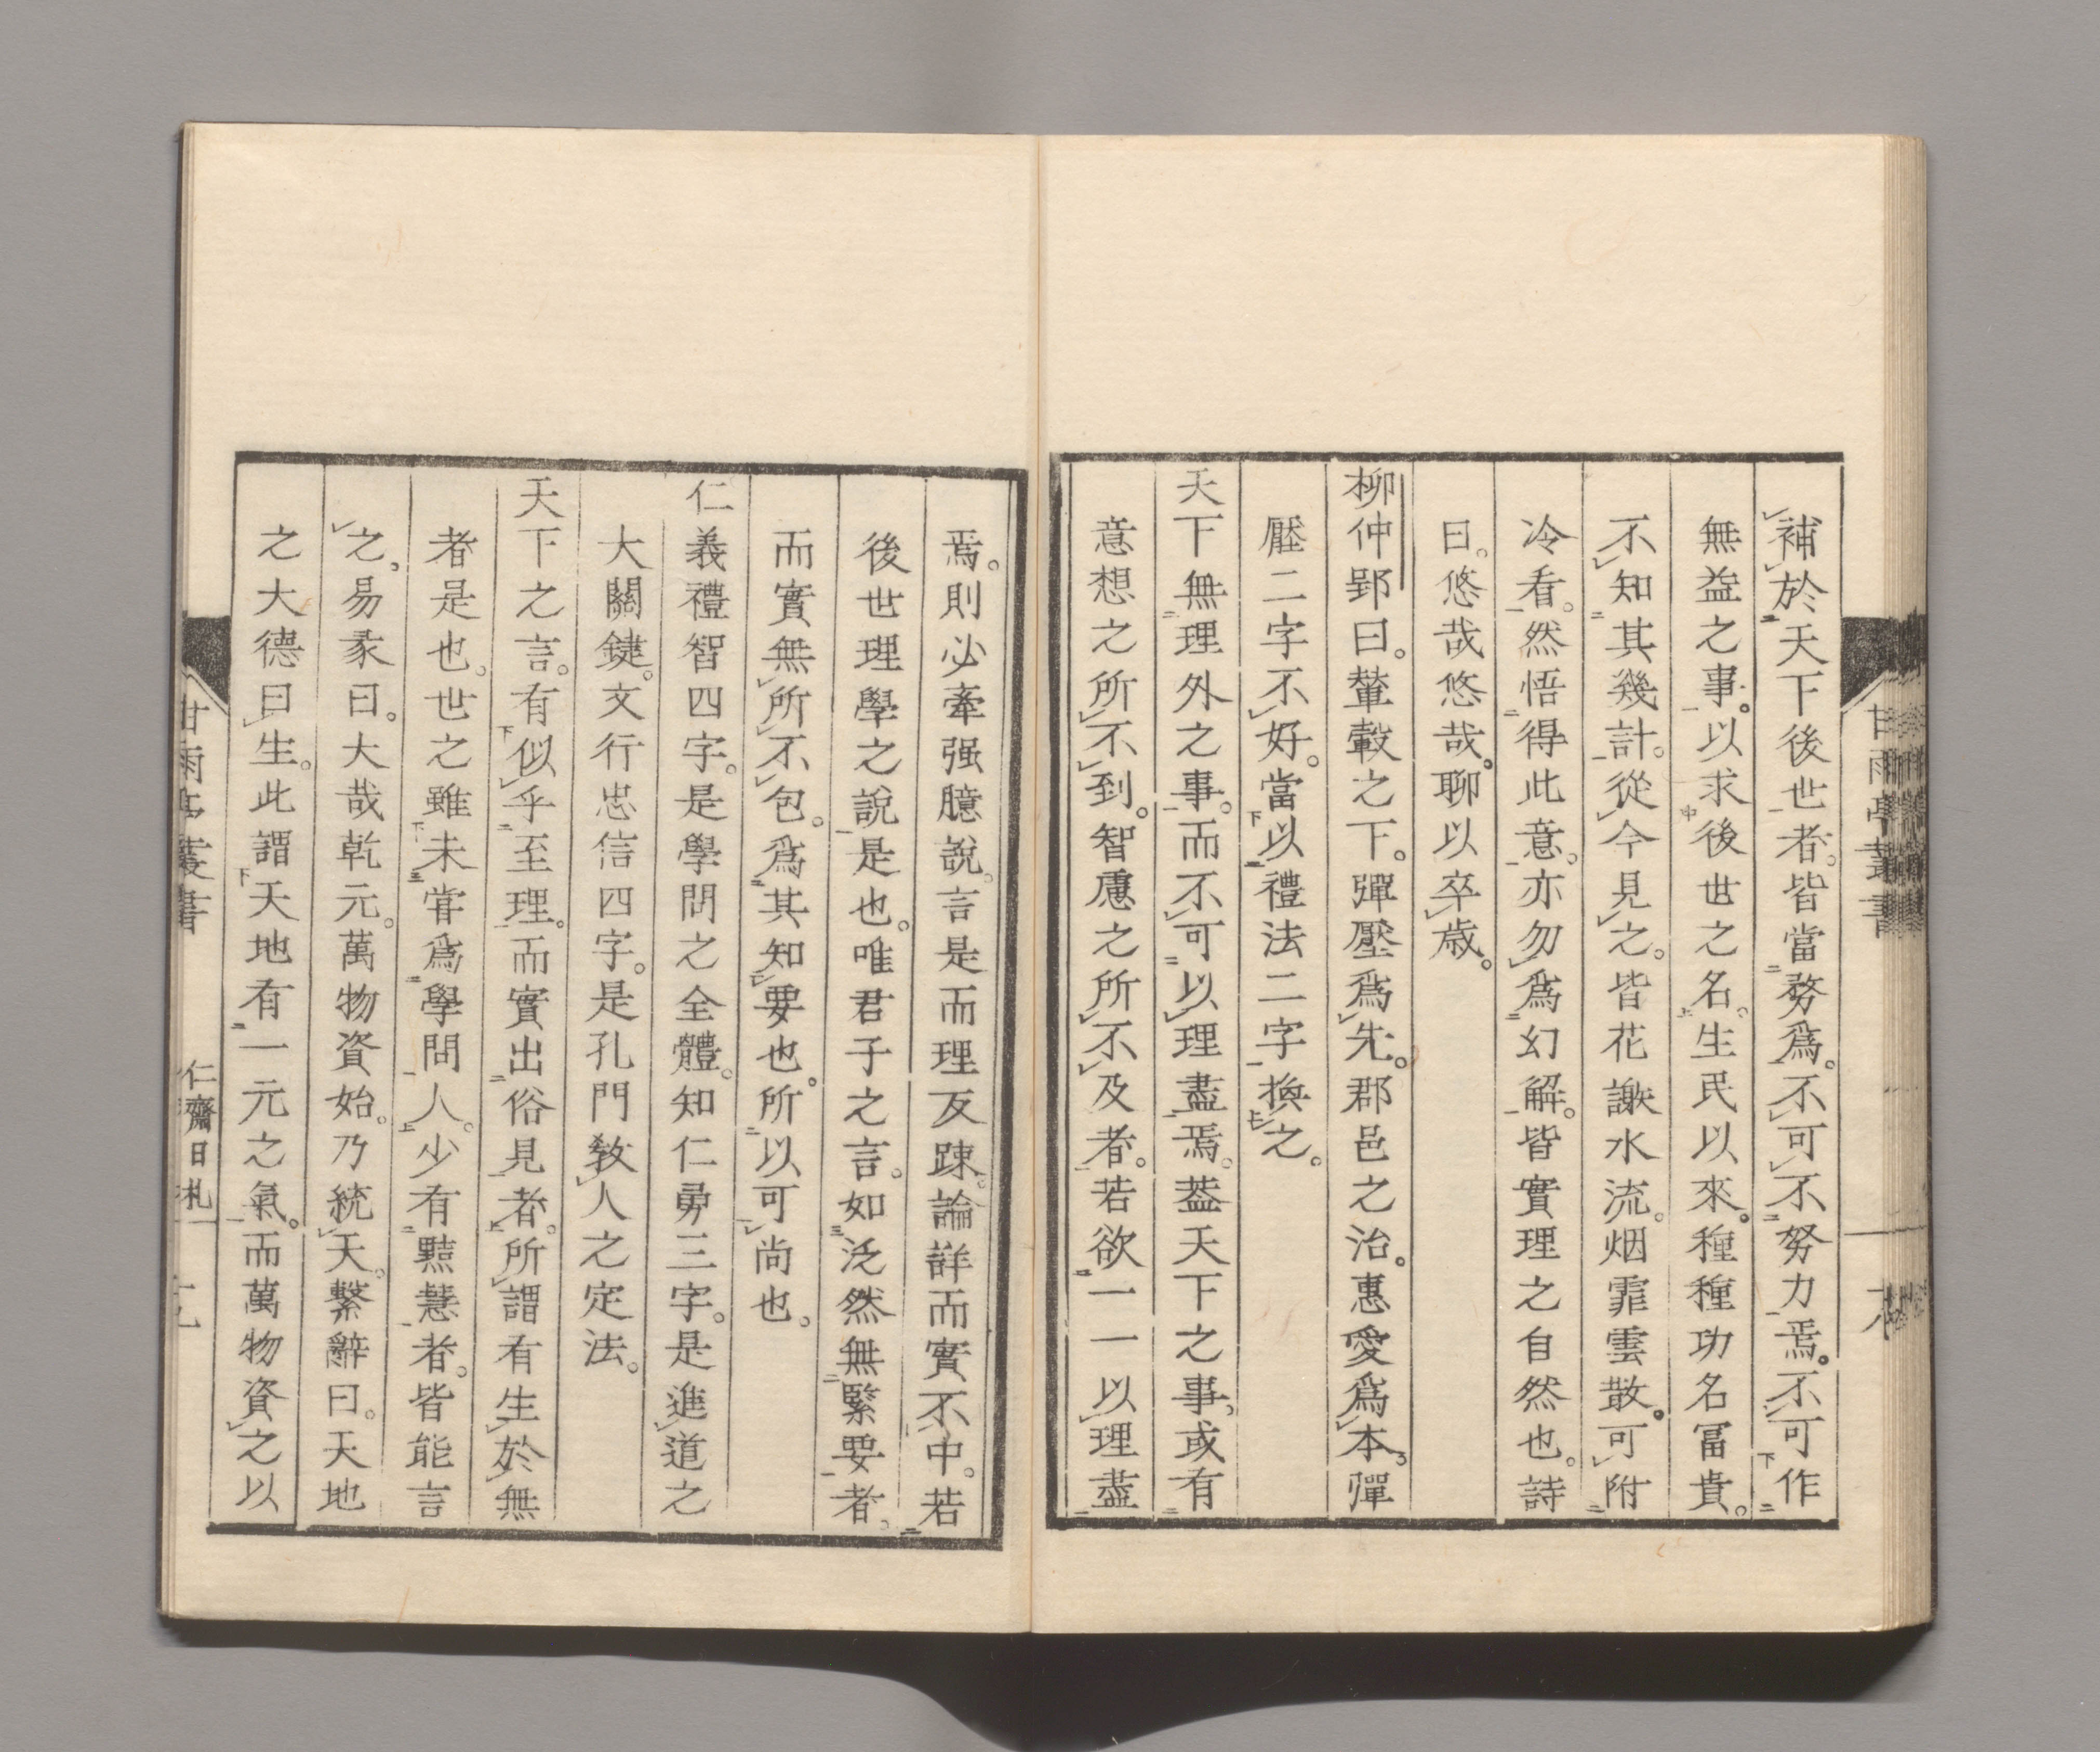 補於天下後世者。皆當務爲。不可不努力焉。不可作
無益之事。以求後世之名。生民以來。種種功名冨貴。
不知其幾計。從今見之。皆花謝水流。烟霏雲散。可附
冷看。然悟得此意。亦勿爲幻解。皆實理之自然也。詩
曰。悠哉悠哉。聊以卒歳。
柳仲郢曰。輦轂之下。彈壓爲先。郡邑之治。惠愛爲本。彈
壓二字不好。當以禮法二字換之。
天下無理外之事。而不可以理盡焉。葢天下之事。或有
意想之所不到。智慮之所不及者。若欲一一以理盡
焉。則必牽强臆說。言是而理反踈。論詳而實不中。若
後世理學之說是也。唯君子之言。如泛然無緊要者。
而實無所不包。爲其知要也。所以可尚也。
仁義禮智四字。是學問之全體。知仁勇三字。是進道之
大關鍵。文行忠信四字。是孔門敎人之定法。
天下之言。有似乎至理。而實出俗見者。所謂有生於無
者是也。世之雖未甞爲學問人。少有黠慧者。皆能言
之。易彖曰。大哉乾元。萬物資始。乃統天。繫辭曰。天地
之大德曰生。此謂天地有一元之氣。而萬物資之以
甘雨亭叢書
仁齋日札
十九
甘雨亭叢書